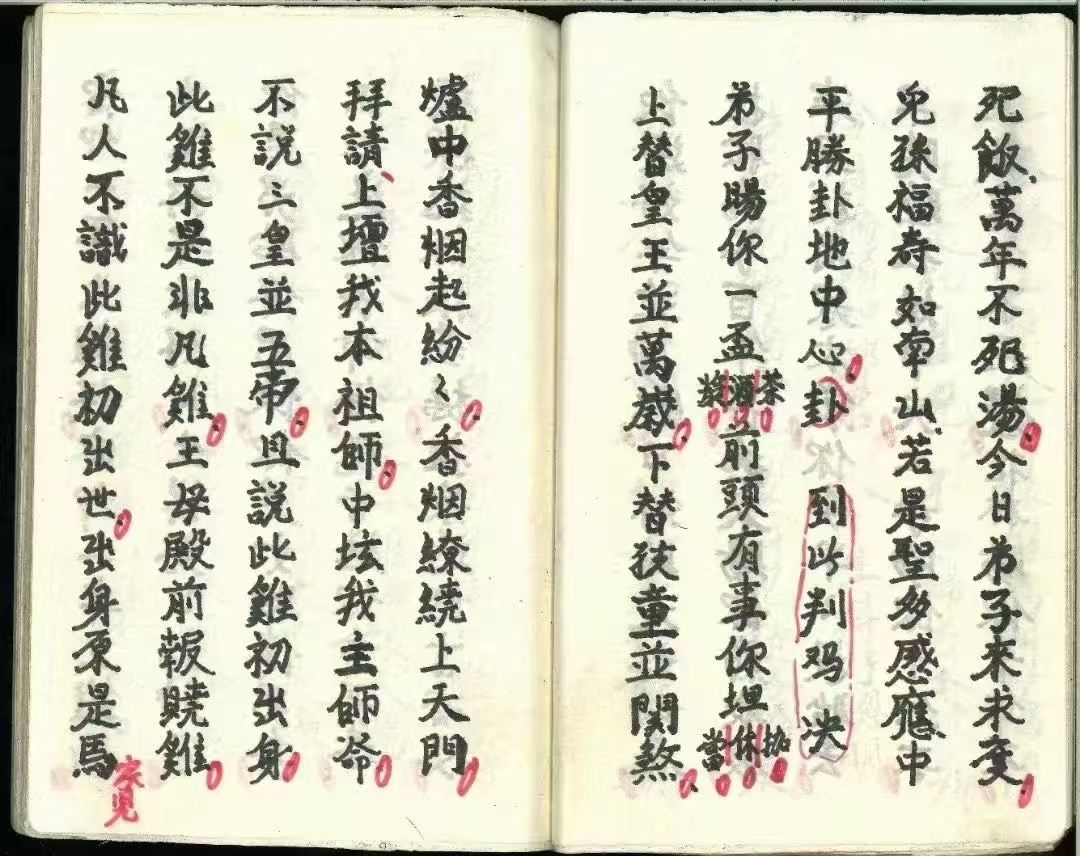 死飯、萬年不死湯今日弟子來求变
兒孫福寿如南山若是聖多感應中
平勝卦地中心卦 到此判鸡决
弟子賜你一盃茶酒漿前頭有事你坦抵休當
上替皇王並萬歲下替扶童並関煞
爐中香烟起紛々香烟繚繞上天門
拜請上壇我本祖師中坛我主師爺
不説三皇並五帝且説此雞初出身
此雞不是非凡雞王母殿前報曉雞
凡人不識此雞初出世出身原是馬家兒